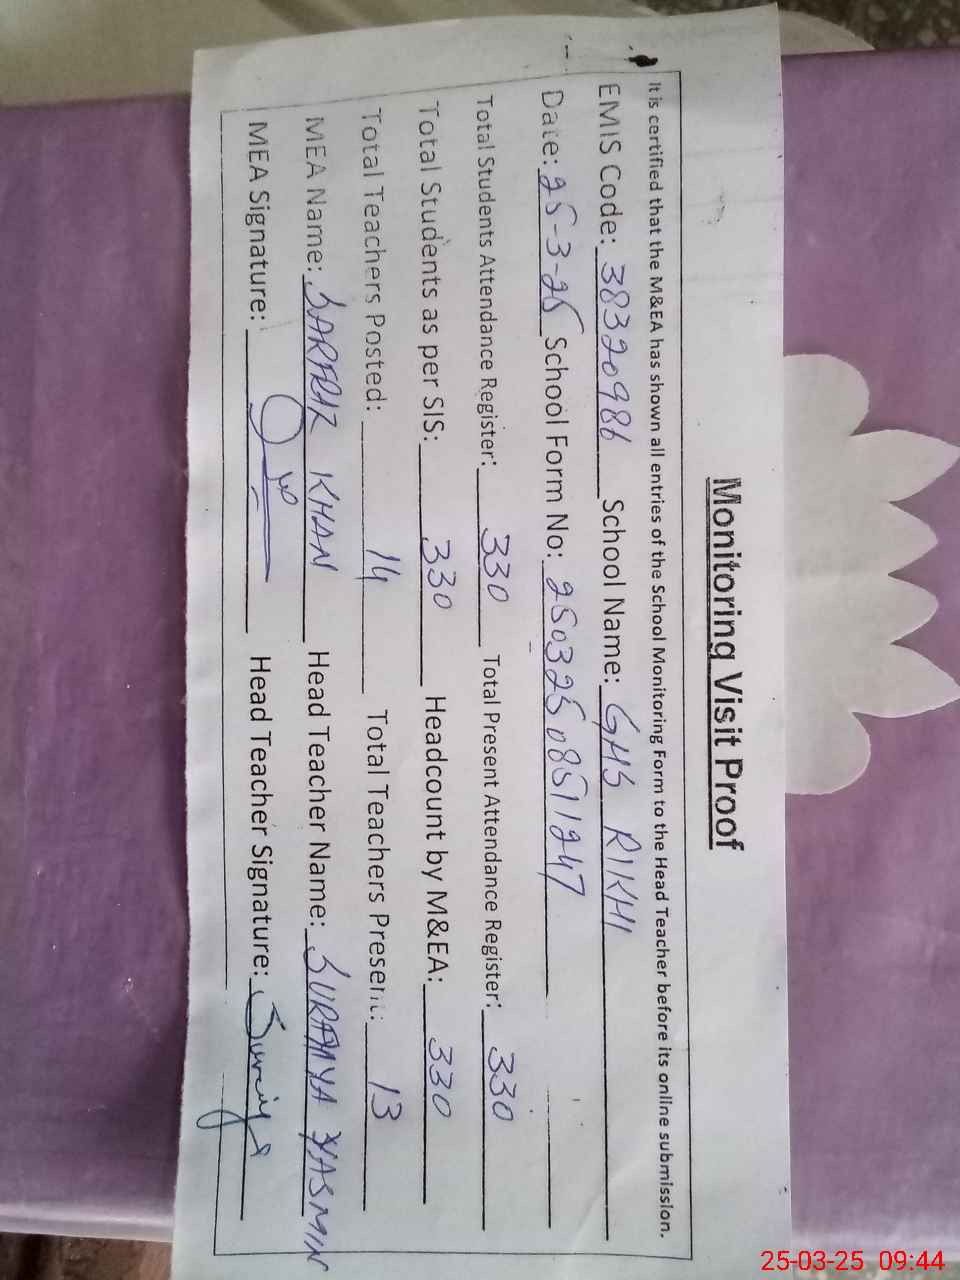 Monitoring Visit Proof
It is certified that the M&EA has shown all entries of the School Monitoring Form to the Head Teacher before its online submission.
EMIS Code: 38320986 School Name: GHS RIKHI
Date: 25-3-25 School Form No: 25032508511247
Total Students Attendance Register: 330 Total Present Attendance Register: 330
Total Students as per SIS: 330 Headcount by M&EA: 330
Total Teachers Posted: 14 Total Teachers Present: 13
MEA Name: SARFRAZ KHAN Head Teacher Name: SURAYYA YASMIN
MEA Signature: Head Teacher Signature: Surayya
25-03-25 09:44